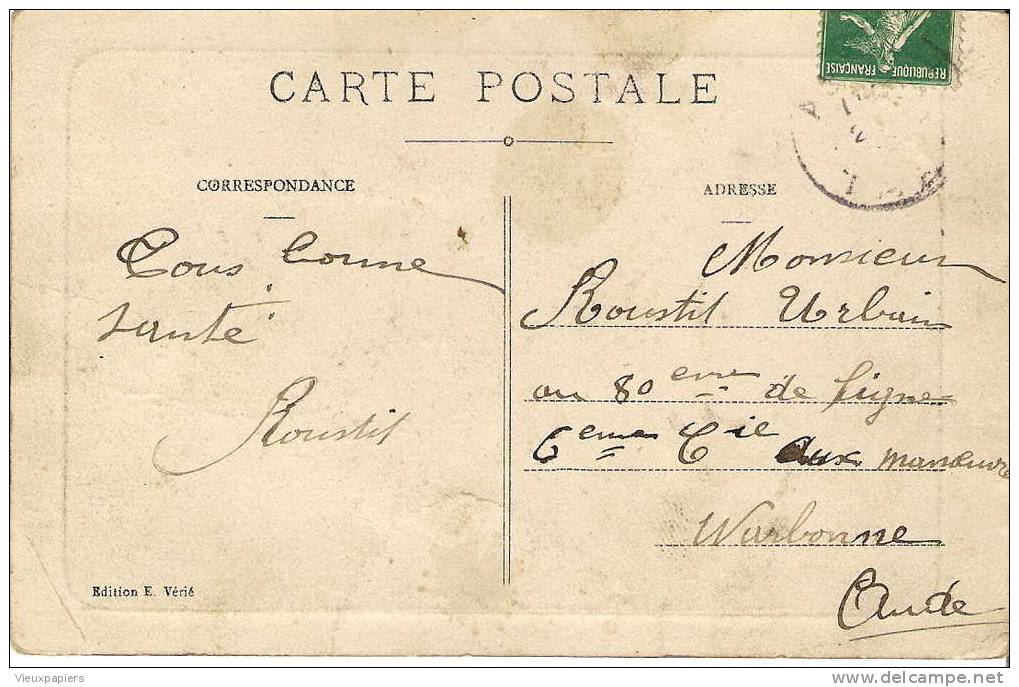 REPUBLIQUE FRANÇAISE
CARTE POSTALE
CORRESPONDANCE
Tous bonne
santé
Roustit
Edition E. Vérié
ADRESSE
Monsieur
Roustit Urbain
au 80 eme de ligne
6 eme Cie aux manœuvre
Narbonne
Aude
Vieuxpapiers
www.delcampe.net